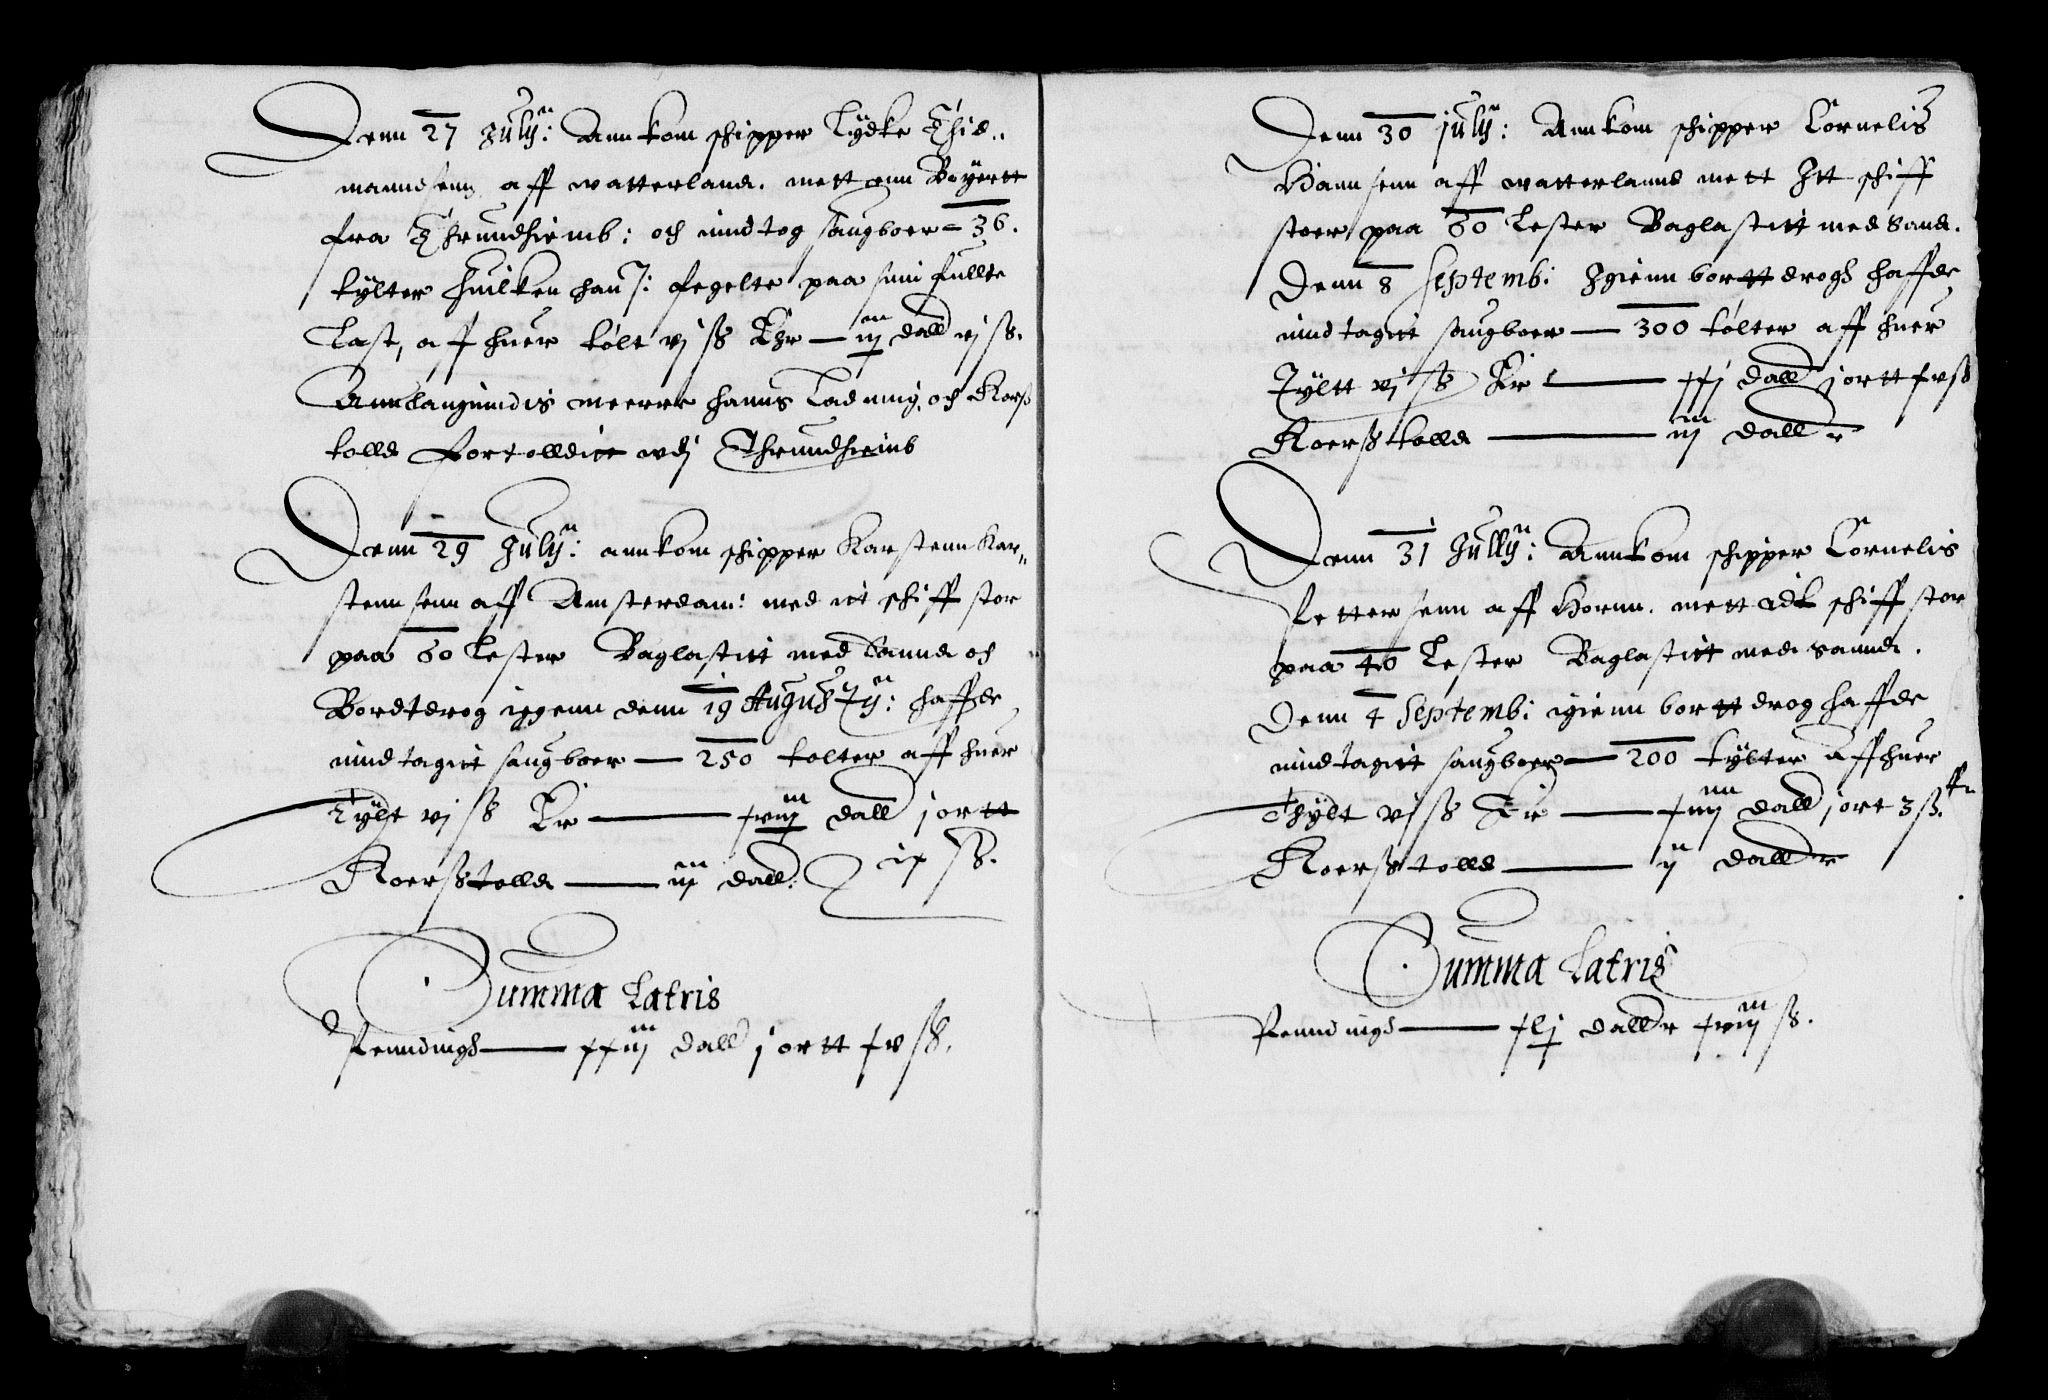 Denn 27 Julÿ: Annkom schipper Tÿdke Thid..
mandsenn aff watterland. mett enn Boÿertt
fra Thrundhiemb: och inndtog saugboer = 36.
tÿlter huilken hand: segelte paa sinn fullte
Last, aff huer tólt vj ß Thr — iij dall vj ß.
Annlangindis meerre hanns Ladning, och Korß
tolld fortolldit vdj Thrundhieimb
Denn 29 Julÿ: annkom schipper Karstenn Kar=
stennsenn aff Amsterdam: med itt schiff stor
paa 60 Lester Baglastitt med Sannd och
Bordtdrog igenn denn 19 Augustÿ: haffde
inndtagitt saugboer — 250 tolter aff huer
Tÿlt vj ß Tr — xviij dall j ortt
ix ß.
Koerßtolld — iij dall:
Summa Latris
Penndinngh — xxiij dall j ortt xv ß.
Denn 30 julÿ: Annkom schipper Cornelis
Hannsenn aff watterlannd mett Itt schiff
stoer paa 60 Lester Baglastitt med Sand.
Denn 8 Septemb: Igienn bortt drogh haffde
inndtagitt saugboer — 300 tólter aff huer
Tÿltt vj ß Tr — xxij dall j ortt xv ß
Koerßtolld — iij dallr
Denn 31 Jullÿ: Annkom schipper Cornelis
Pettersenn aff Hornn. mett Idt schiff stor
paa 40 Lester Baglastitt med sannd.
Denn 4 Septemb: igienn bortt drog haffde
inndtagitt saugboer — 200 tÿlter Aff huer
Thÿlt vj ß Tr — xiiij dall j ort 3 ß.
Koerßtolld — ij dallr
Summa Latris
Penndingh — xlj dallr xviij ß.